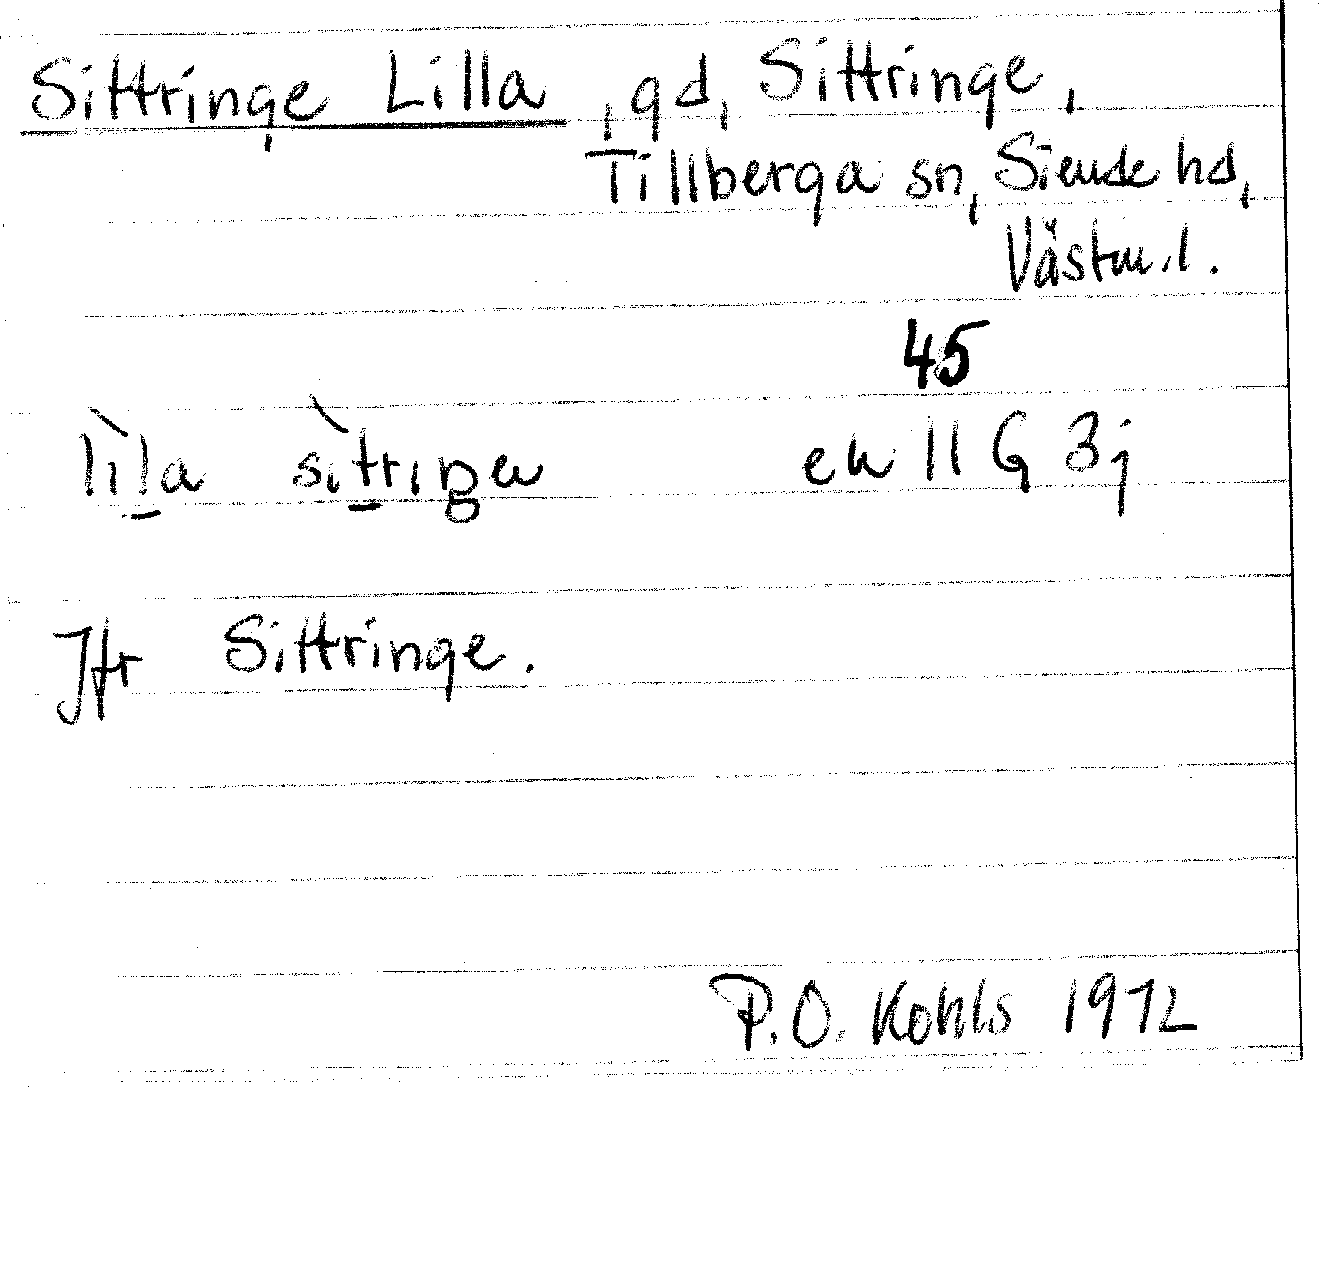 Sittringe Lilla, gd, Sittringe,
Tillberga sn, Siende hd,
Västm.l.
45
lìl̠a sìt̠riŋɞ ek 11 G 3j
Jfr Sittringe.
P.O. Kohls 1972